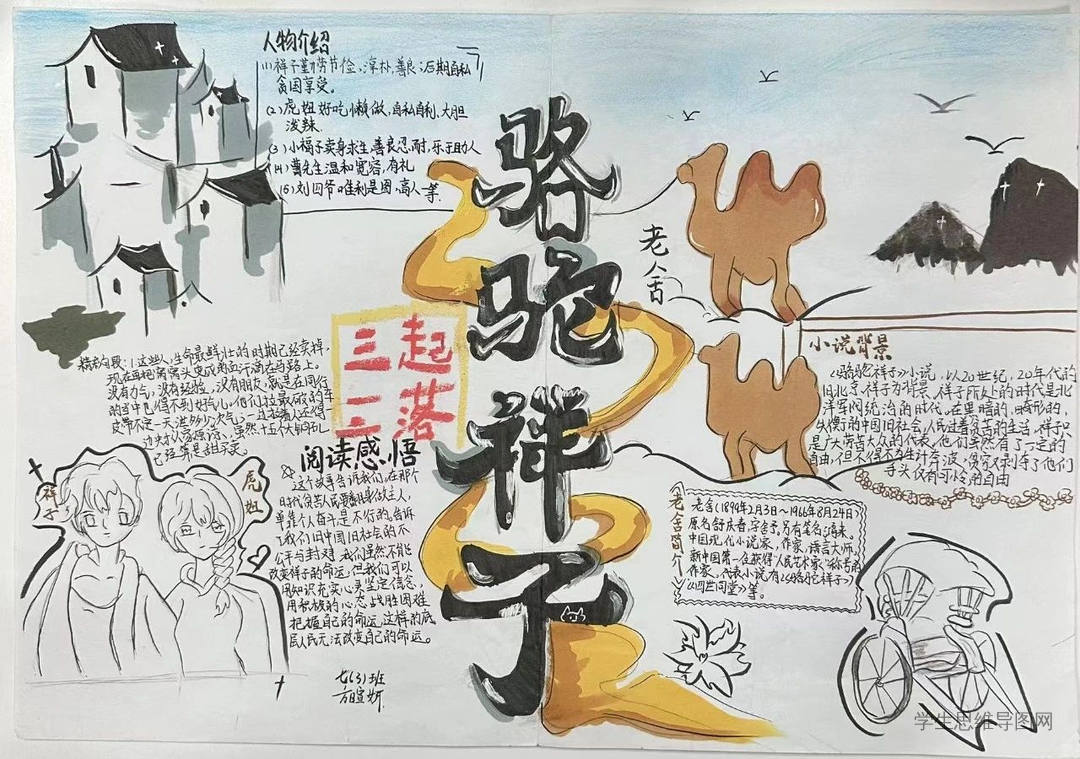 人物介绍
(1)祥子勤劳节俭、淳朴,善良;后期自私
贪图享受。
(2)虎妞好吃懒做,自私自利、大胆
泼辣
(3)小福子卖身求生,善良忍耐,乐于助人
(4)曹先生温和宽容,有礼
(5)刘四爷唯利是图,高人一等.
骆驼祥子
老舍
三起
三落
精彩句段:1.这些人,生命最鲜壮的时期已经卖掉,
现在再把窝窝头变成的血汗滴在马路上。
没有力气,没有经验,没有朋友,就是在同行
的当中也得不到好气儿。他们拉最破的车
皮带不定一天泄多少次气;一边拉着人还得一
边央求人家原谅,虽然十五个大铜子儿
已经算是甜买卖。
祥子
虎妞
阅读感悟
这个故事告诉我们,在那个
时代贫苦人民要翻身做主人,
单靠个人奋斗是不行的。告诉
了我们旧中国旧社会的不
公平与封建,我们虽然不能
改变祥子的命运,但我们可以
用知识充实心灵坚定信念,
用积极的心态战胜困难
把握自己的命运,这样的底
层人民无法改变自己的命运。
七(3)班
小说背景
《骆驼祥子》小说,以20世纪,20年代的
旧北京,祥子为背景,祥子所处的时代是北
洋军阀统治的时代。在黑暗的,畸形的,
失衡的中国旧社会人民过着贫苦的生活,祥子只
是广大劳苦大众的代表,他们虽然有了一定的
自由,但又得不为生计奔波,贫穷又剥夺了他们
手头仅有可怜的自由
老舍简介
老舍(1899年2月3日~1966年8月24日)
原名舒庆春,字舍予,另有笔名
中国现代小说家,作家,语言大师,
新中国第一位获得"人民艺术家"称号的
作家,代表小说有《骆驼祥子》
《四世同堂》等。
学生思维导图网